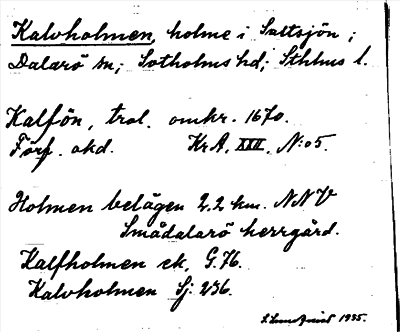 Kalvholmen, holme i Saltsjön;
Dalarö sn; Sotholms hd; Sthlms l.
Kalfön, trol. omkr. 1670.
Förf. okd. Kr A. XXII. N:o 5.
Holmen belägen 2.2 km. NNV
Smådalarö herrgård.
Kalfholmen ek. G. 76.
Kalvholmen Sj: 236.
1935.